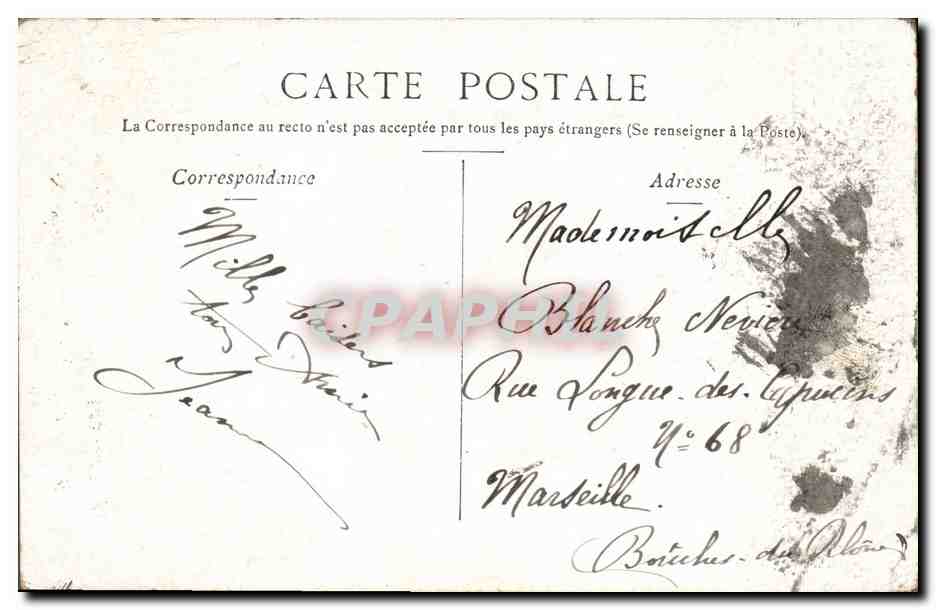 CARTE POSTALE
La Correspondance au recto n'est pas acceptée par tous les pays étrangers (Se renseigner à la Poste).
Correspondance
Mille baisers
ton
Jeanne
Adresse
Mademoiselle
Blanche Nevière
Rue Longue-des-Capucins
N° 68
Marseille.
Bouches-du-Rhône
CPAPHIL